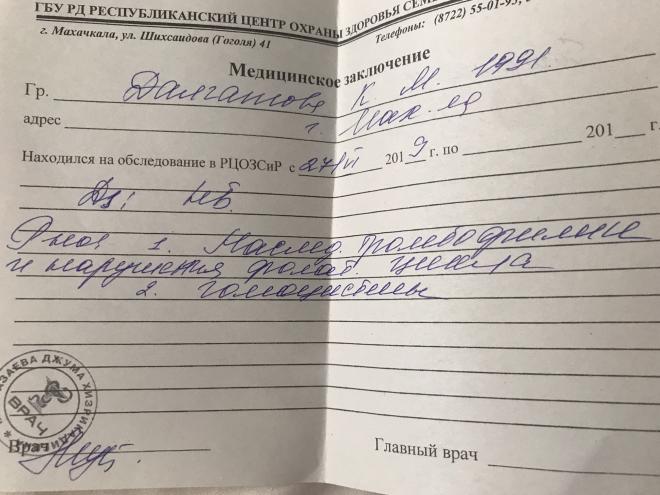 ГБУ РД РЕСПУБЛИКАНСКИЙ ЦЕНТР ОХРАНЫ ЗДОРОВЬЯ СЕМЬ
г. Махачкала, ул. Шихсаидова (Гоголя) 41
Телефоны: (8722) 55-01-95,
Медицинское заключение
Гр. Далгатова К М. 1991
адрес г. Мах-ла
Находился на обследование в РЦОЗСиР с 27/VI 2019 г. по 201 г.
Дз: НБ.
1. Наслед. тромбофилии
и нарушения фолат. цикла
2. гомоцистеин
АЗАЕВА ДЖУМА ХИЗРИКАДИЕВНА
ВРАЧ
Врач
Главный врач